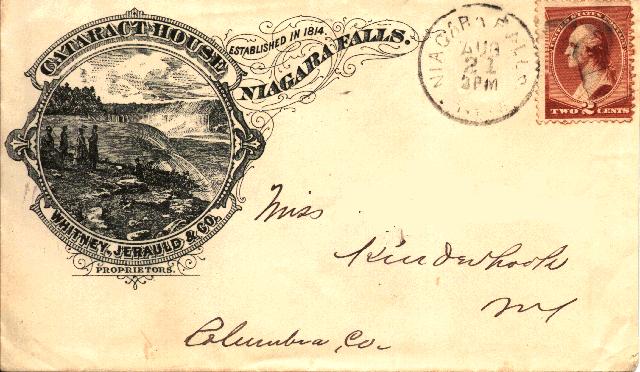 CATARACT HOUSE
ESTABLISHED IN 1814.
NIAGARA FALLS.
WHITNEY, JERAULD & CO.
PROPRIETORS.
NIAGARA FALLS
AUG
21
3PM
TWO 2 CENTS
Miss
Kinderhook
NY
Columbia Co.